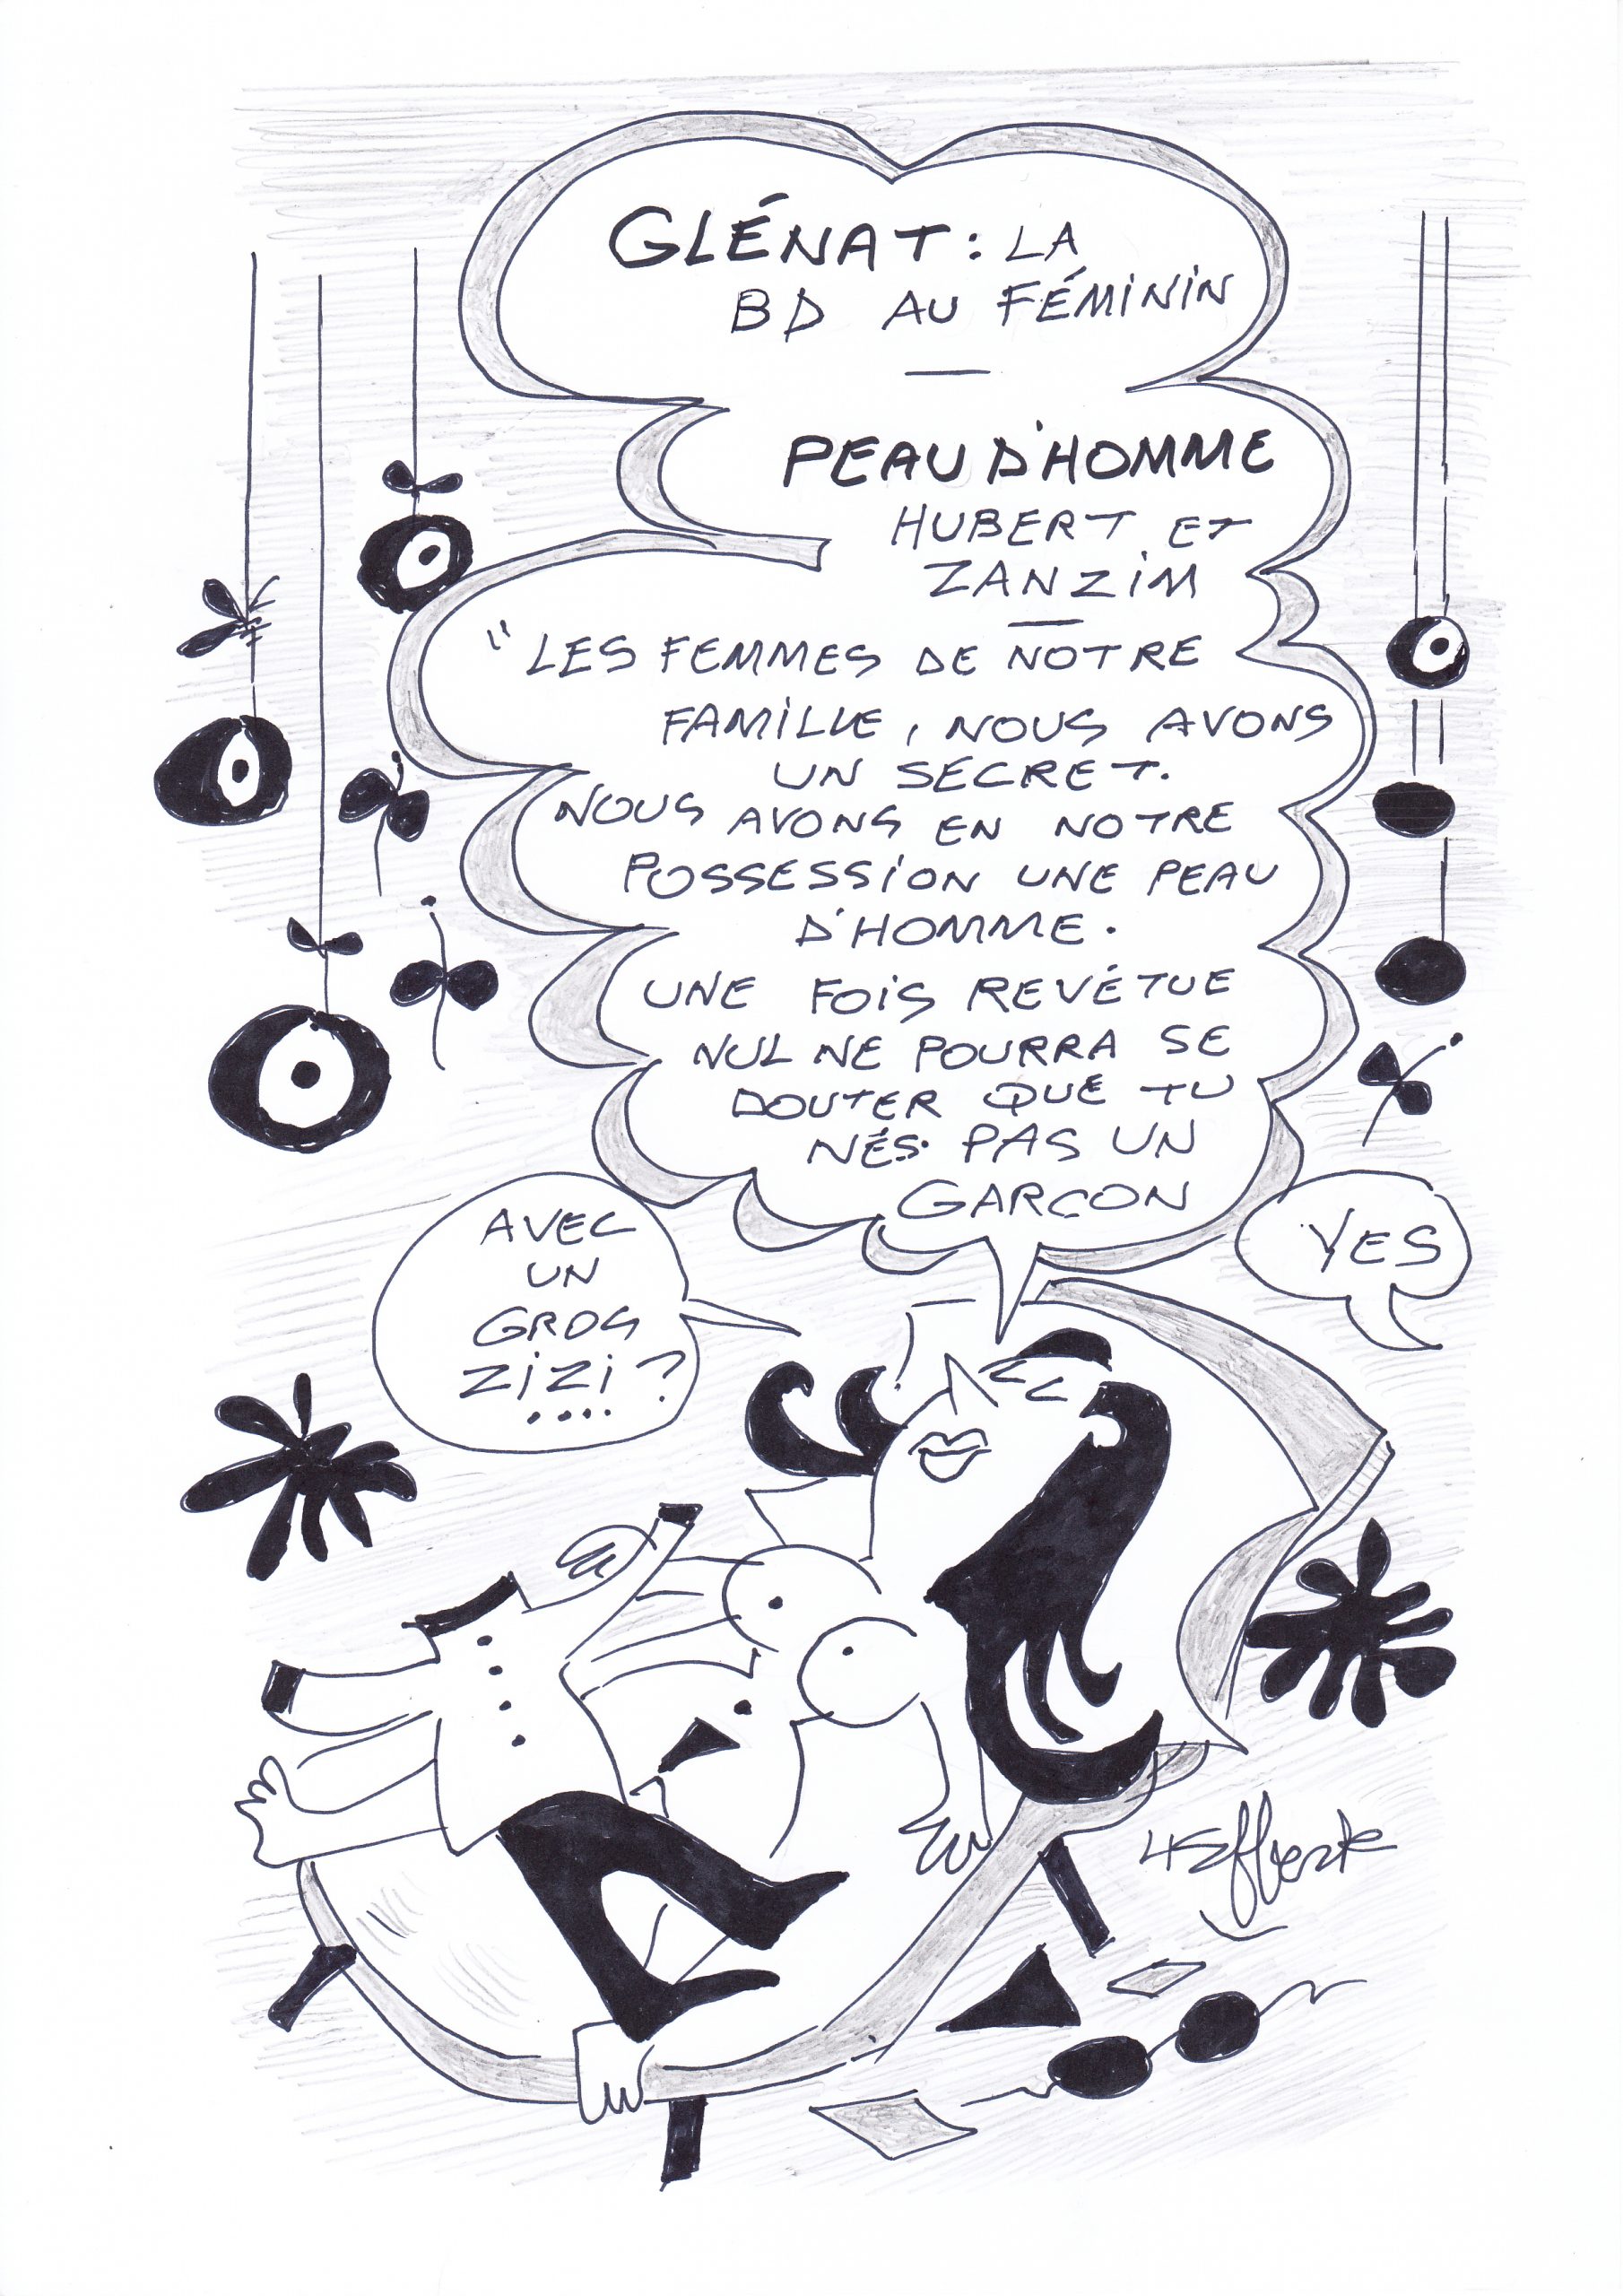 GLÉNAT : LA
BD AU FÉMININ
PEAU D'HOMME
HUBERT ET
ZANZIM
"LES FEMMES DE NOTRE
FAMILLE, NOUS AVONS
UN SECRET.
NOUS AVONS EN NOTRE
POSSESSION UNE PEAU
D'HOMME.
UNE FOIS REVÉTUE
NUL NE POURRA SE
DOUTER QUE TU
NÉS PAS UN
GARÇON
YES
AVEC
UN
GROS
ZIZI ?
....